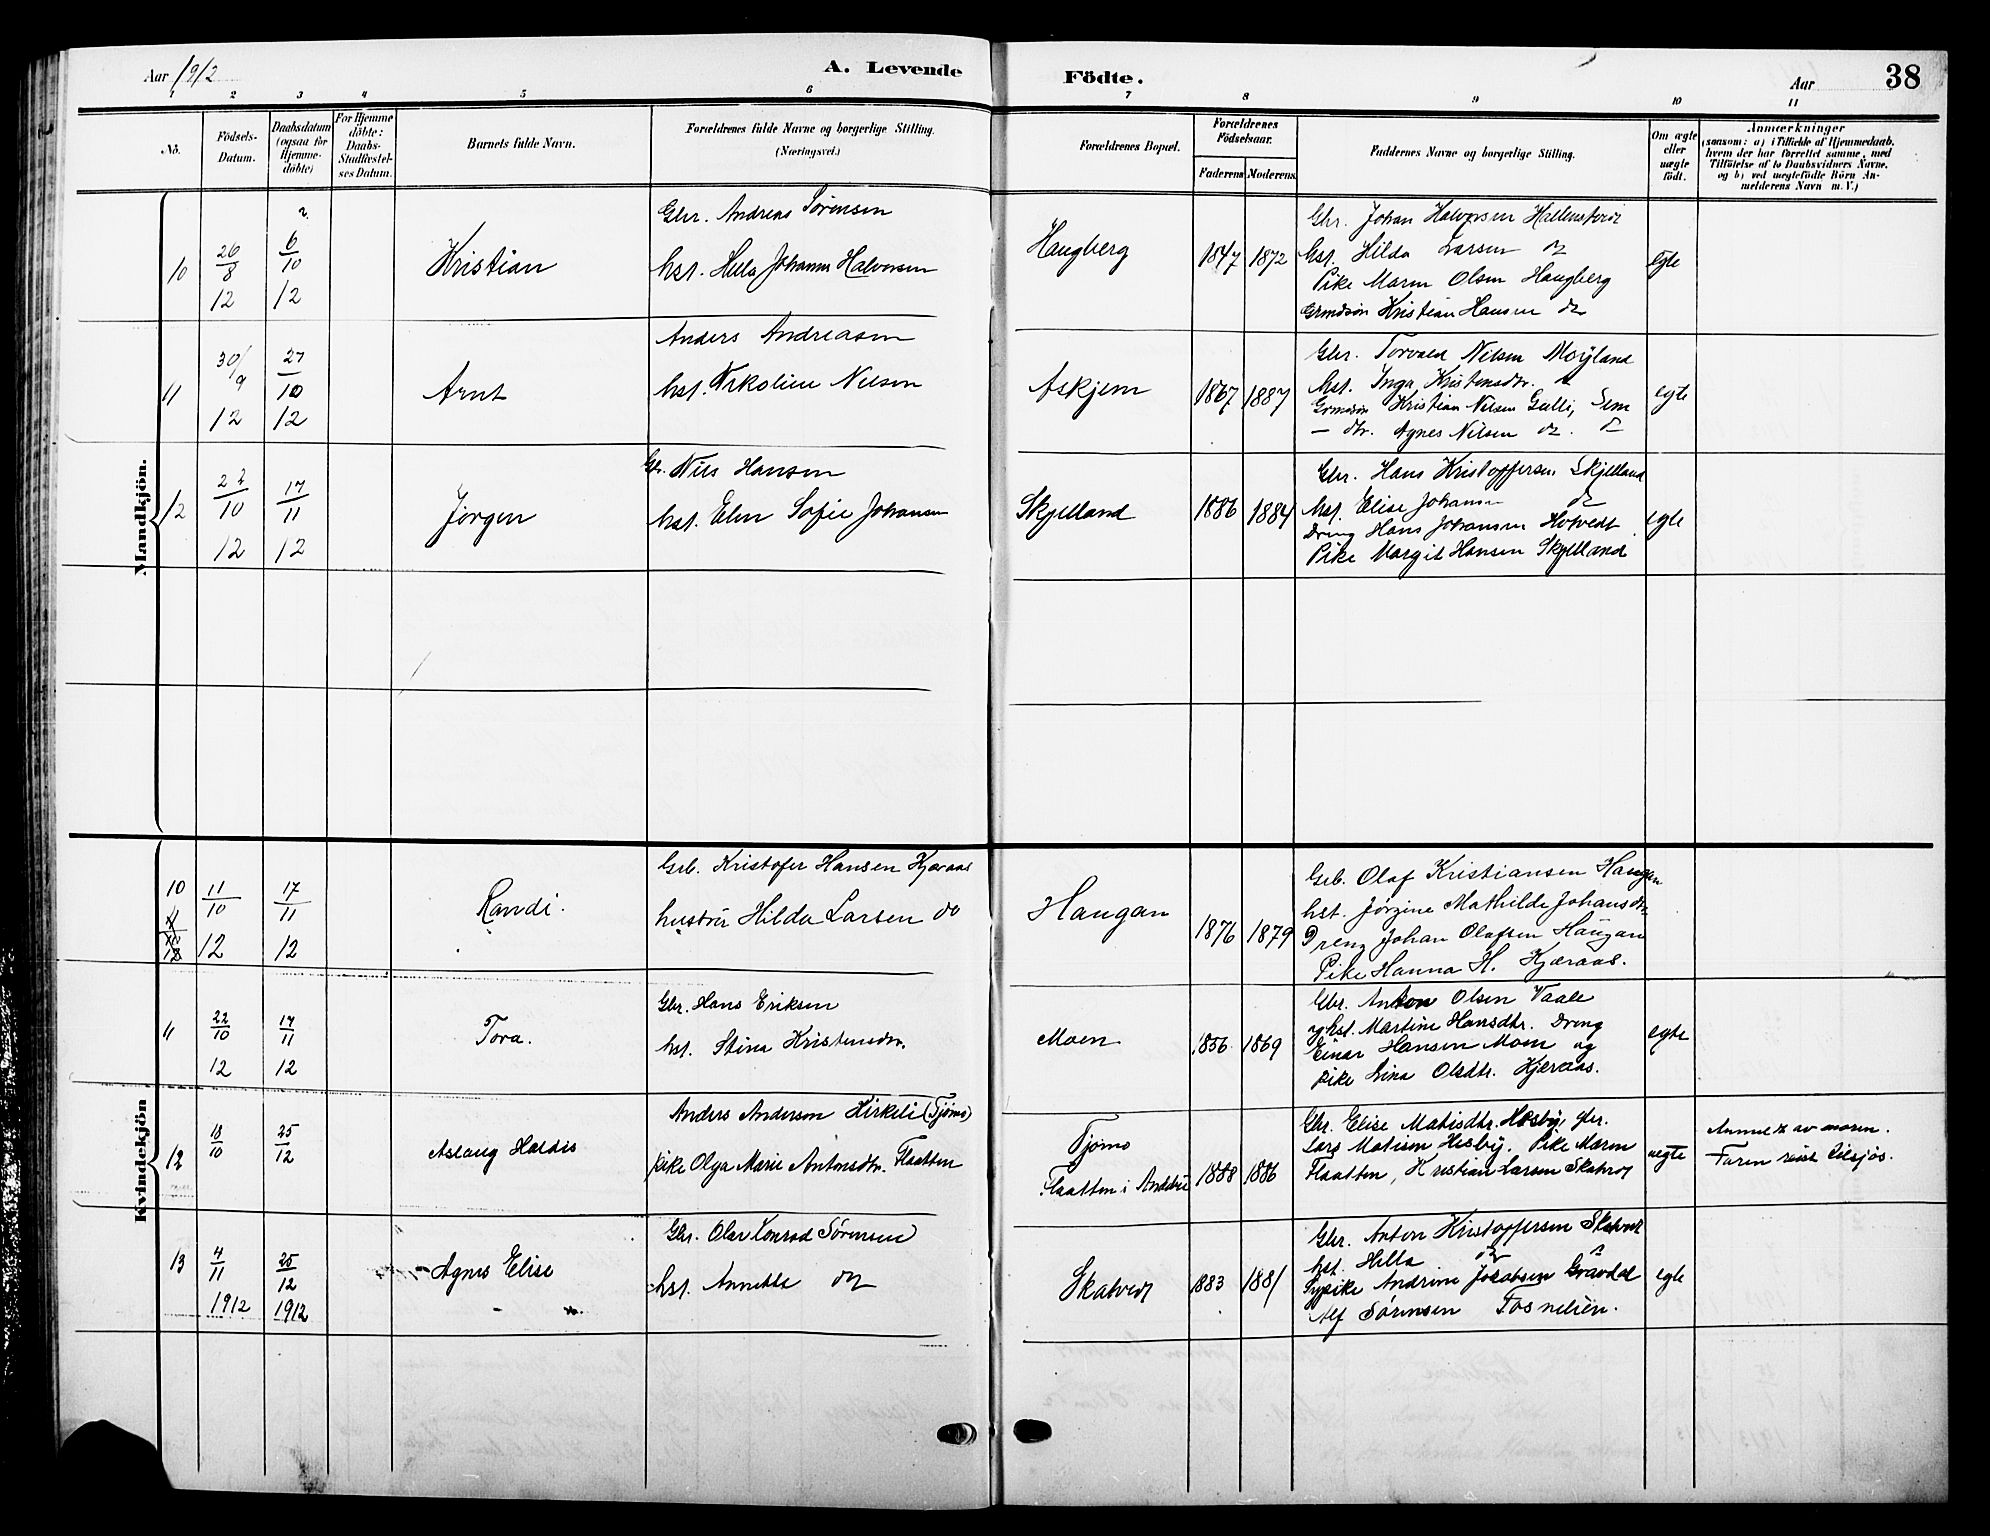 Aar 1912
A. Levende
Födte.
Aar
38
1 2 3 4 5 6 7 8 9 10 11
Nô.
Födsels-Datum.
Daabsdatum (ogsaa for Hjemme-döbte)
For Hjemme döbte: Daabs-Stadfæstelses Datum.
Barnets fulde Navn.
Forældrenes fulde Navne og borgerlige Stilling. (Næringsvei.)
Forældrenes Bopæl.
Forældrenes Födselsaar.
Faderens Moderens
Faddernes Navne og borgerlige Stilling.
Om ægte eller uægte födt.
Anmærkninger
(saasom: a) i Tilfælde af Hjemmedaab, hvem der har forrettet samme, med Tilföielse af to Daabsvidners Navne, og b) ved uægtefödte Börn Anmelderens Navn m. V.)
Mandkjön.
10
26/8 12
6/10 12
Kristian
Gbr. Andreas Sørensen
hst. Hella Johanne Halvorsen
Haugberg
1847 1872
Gbr. Johan Halvorsen
hst. Hilda Larsen do
Pike Maren Olsen Haugberg
Grmdsøn Kristian Hansen do
egte
11
30/9 12
27/10 12
Arnt
Anders Andreasen
hst. Nikoline Nilsen
Askjem
1867 1887
Gbr. Torvald Nilsen Moyland
hst. Inga Kristensdtr. do
Grmdsøn Kristian Nilsen Gulli, Sem
— dtr. Agnes Nilsen do. do
egte
12
22/10 12
17/11 12
Jørgen
Gbr. Nils Hansen
hst. Elen Sofie Johansen
Skjelland
1886 1884
Gbr. Hans Kristoffersen Skjelland
hst. Elise Johansen do
Dreng Hans Johansen Hotvedt
Pike Margit Hansen Skjelland
egte
Kvindekjön
10
11/10 12
17/11 12
Randi.
Grb. Kristofer Hansen Kjæraas
hustru Hilda Larsen do
Haugan
1876 1879
Grb. Olaf Kristiansen Haugan
hst. Jørgine Mathilde Johansdtr.
Dreng Johan Olafsen Haugan
Pike Hanna H. Kjæraas.
11
22/10 12
17/11 12
Tora.
Gbr. Hans Eriksen
hst. Stina Kristensdtr.
Moen
1856 1869
Gbr. Anton Olsen Vaale
og hst. Martine Hansdtr. Dreng
Einar Hansen Moen og
pike Lina Olsdtr. Kjæraas.
egte
12
18/10
25/12
Aslaug Haldis
Anders Andersen Kirkeli (Tjømø)
pike Olga Marie Antonsdtr. Flaatten
Tjømo
Flaatten i Andebu
1888 1886
Gbr. Elise Matisdtr. Hesby, gbr.
Lars Matisen Hesby. Pike Maren
Flaatten, Kristian Larsen
uegte
Anmeldt av moren.
Faren reist tilsjøs.
13
4/11 1912
25/12 1912
Agnes Elise
Gbr. Olav Konrad Sørensen
hst. Annette do
Skatvedt
1883 1881
Gbr. Anton Kristoffersen Skatvedt
hst. Hella do
Sypike Andrine Jacobsen Gravdal
Alf Sørensen Fosnelien.
egte